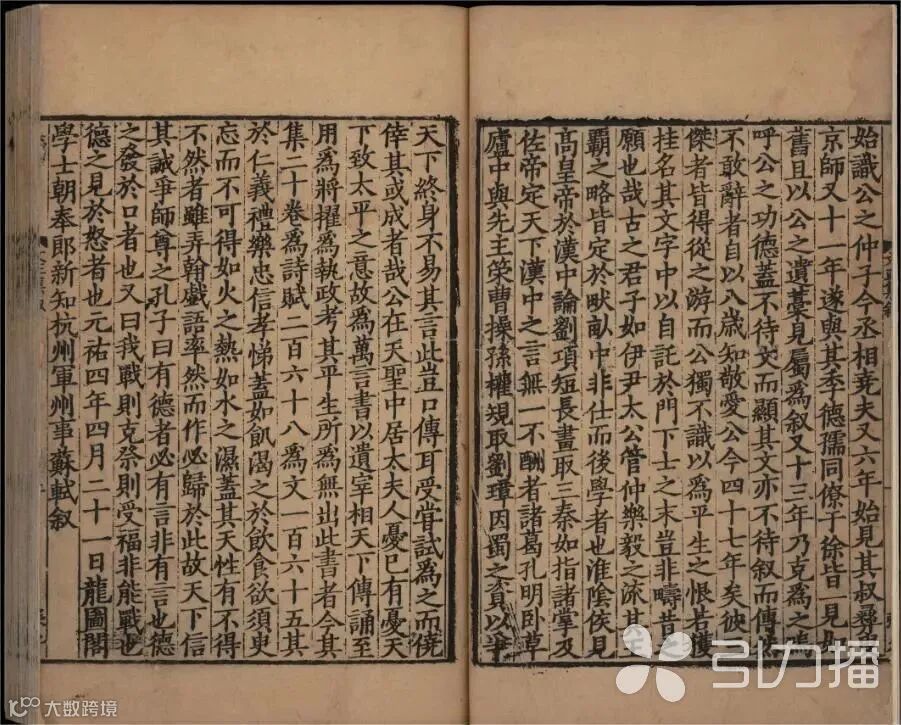 始識公之仲子今丞相堯夫又六年始見其叔彛叟
京師又十一年遂與其季德孺同僚于徐皆一見如
舊且以公之遺藁見屬爲叙又十三年乃克爲之嗚
呼公之功德蓋不待文而顯其文亦不待叙而傳然
不敢辭者自以八歲知敬愛公今四十七年矣彼三
傑者皆得從之游而公獨不識以爲平生之恨若獲
挂名其文字中以自託於門下士之末豈非疇昔之
願也哉古之君子如伊尹太公管仲樂毅之流其王
霸之略皆定於畎畝中非仕而後學者也淮陰侯見
髙皇帝於漢中論劉項短長畫取三秦如指諸掌及
佐帝定天下漢中之言無一不酬者諸葛孔明卧草
廬中與先主策曹操孫權規取劉璋因蜀之資以爭
天下終身不易其言此豈口傳耳受嘗試爲之而僥
倖其或成者哉公在天聖中居太夫人憂已有憂天
下致太平之意故爲萬言書以遺宰相天下傳誦至
用爲將擢爲執政考其平生所爲無出此書者今其
集二十卷爲詩賦二百六十八爲文一百六十五其
於仁義禮樂忠信孝悌蓋如飢渴之於飲食欲須臾
忘而不可得如火之熱如水之濕蓋其天性有不得
不然者雖弄翰戲語率然而作必歸於此故天下信
其誠爭師尊之孔子曰有德者必有言非有言也德
之發於口者也又曰我戰則克祭則受福非能戰也
德之見於怒者也元祐四年四月二十一日龍圖閣
學士朝奉郎新知杭州軍州事蘇軾叙
引力播
大数跨境